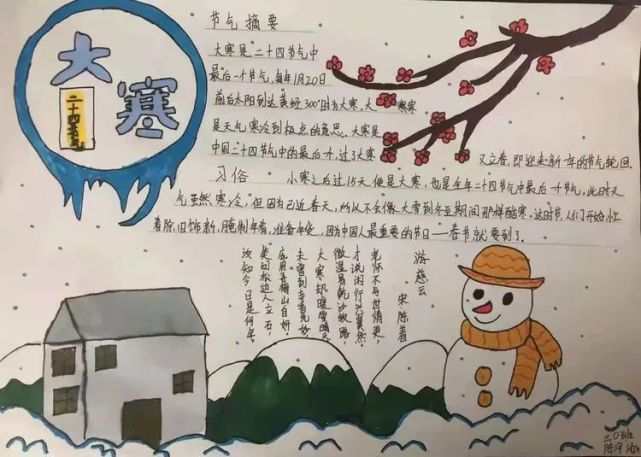 大寒
二十四节气
节气 摘要
大寒是"二十四节气中
最后一个节气,每年1月20日
前后太阳到达黄经300°时为大寒,大寒寒
是天气寒冷到极点的意思。大寒是
中国二十四节气中的最后一个,过了大寒
又立春,即迎来新一年的节气轮回。
习俗 小寒之后过15天便是大寒,也是全年二十四节气中最后一个节气,此时天
气虽然寒冷,但因为已近春天,所以不会像大雪到冬至期间那样酷寒。这时节,人们开始忙
着除旧饰新,腌制年肴,准备年货,因为中国人最重要的节日——春节就要到了。
游慈云
宋 陈著
老怀不与世情更,
才说闲行兴翼然。
微湿易乾沙软路,
大寒却暖雪晴天。
未曾到寺香先妙,
底用寻梅山自好,
笑问松边人立石,
汝知今日是何年。